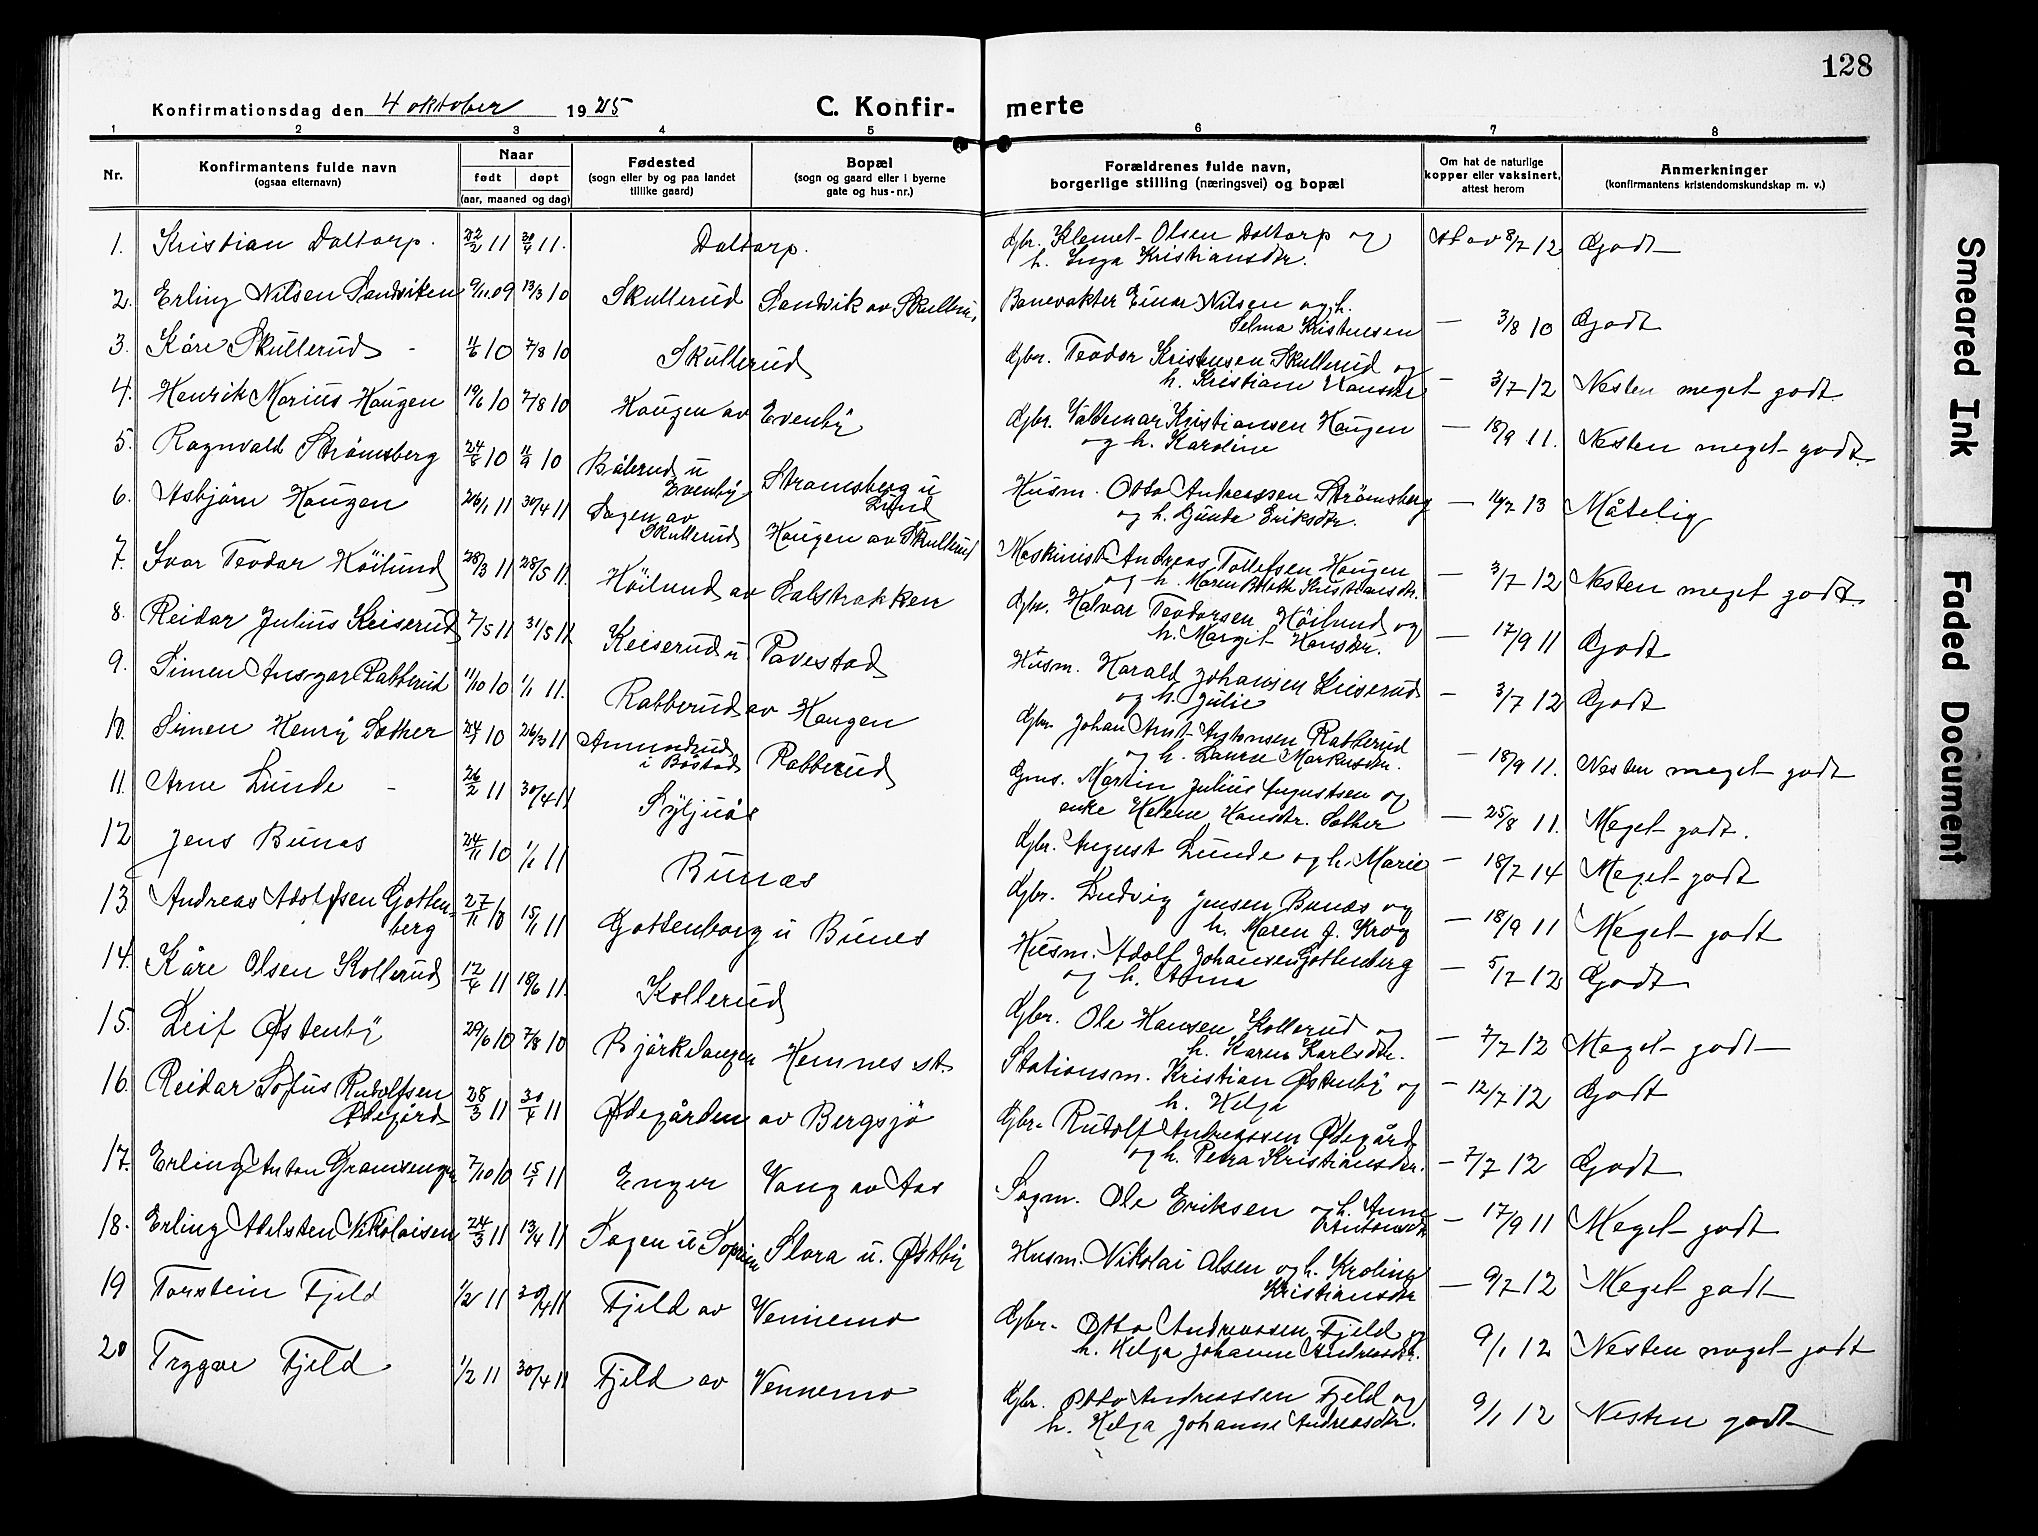 128
Konfirmationsdag den 4 oktober 1925
C. Konfirmerte
1 2 3 4 5 6 7 8
Nr.
Konfirmantens fulde navn
(ogsaa efternavn)
Naar
født døpt
(aar, maaned og dag)
Fødested
(sogn eller by og paa landet
tillike gaard)
Bopæl
(sogn og gaard eller i byerne
gate og hus-nr.)
Forældrenes fulde navn,
borgerlige stilling (næringsvei) og bopæl
Om hat de naturlige
kopper eller vaksinert,
attest herom
Anmerkninger
(konfirmantens kristendomskundskap m. v.)
1. Kristian Daltorp. 22/2 11 30/4 11. Daltorp. Gbr. Klemet Olsen Daltorp og
h. Inga Kristiansdtr. 8/7 12 Godt
2. Erling Nilsen Sandviken 9/11 09 13/3 10 Skullerud Sandvik av Skullerud Banevokter Einar Nilsen og h.
Selma Kristensen — 3/8 10 Godt
3. Kåre Skullerud 11/6 10 7/8 10 Skullerud Gbr. Teodor Kristensen Skullerud og
h. Kristiane Hansdtr — 3/7 12 Nesten meget godt
4. Henrik Marius Haugen 19/6 10 7/8 10 Haugen av Evenby Gbr. Valdemar Kristiansen Haugen
og h. Karoline — 18/9 11. Nesten meget godt.
5. Ragnvald Strømsberg 24/8 10 11/9 10 Bålerud u
Evenby Strømsberg u
Lund Husm. Otto Andreassen Strømsberg
og h. Gunda Eriksdtr. — 16/7 13 Måtelig
6. Asbjørn Haugen 26/1 11 30/4 11 Sagen av
Skullerud Haugen av Skullerud Maskinist Andreas Tollefsen Haugen
og h. Maren Kristiansdtr. — 3/7 12 Nesten meget godt.
7. Ivar Teodor Höilund 28/3 11 28/5 11. Höilund av Labstrakken Gbr. Halvar Teodorsen Höilund og
h. Margit Hansdtr. — 17/9 11 Godt
8. Reidar Julius Keiserud 7/5 11 31/5 11 Keiserud u. Pavestad Husm. Harald Johansen Keiserud
og h. Julie — 3/7 12 Godt
9. Simen Ansgar Rabberud 11/10 10 1/1 11. Rabberud av Haugen Gbr. Johan Arnt Antonsen Rabberud
og h. Laura Markusdtr. — 18/9 11. Nesten meget godt
10. Simen Henry Sæther 24/9 10 26/3 11 Ammundrud
i Båstad Rabberud Gms. Martin Julius Augustsen og
enke Helene Hansdtr. Sæther — 25/8 11. Meget godt.
11. Arne Lunde 26/2 11 30/4 11 Syljuås Gbr. August Lunde og h. Marie — 18/7 14 Meget godt
12 Jens Bunæs 24/11 10 1/1 11 Bunæs Gbr. Ludvig Jensen Bunæs og
h. Maren J. Krog — 18/9 11 Meget godt
13 Andreas Adolfsen Gotten-
berg 27/11 10 15/1 11 Gottenborg u Bunes Husm. Adolf Johansen Gottenberg
og h. Anna — 5/7 12 Godt
14. Kåre Olsen Kollerud 12/4 11 18/6 11. Kollerud Gbr. Ole Hansen Kollerud og
h. Karen Karlsdtr. — 7/7 12 Meget godt
15. Leif Østenby 29/6 10 7/8 10 Bjørkelangen Hemnes st. Stationsm. Kristian Østenby og
h. Helga — 12/7 12 Godt
16. Reidar Sofus Rudolfsen
Ødegård 28/3 11 30/4 11 Ødegården av Bergsjö Gbr. Rudolf Andreassen Ødegård
og h. Petra Kristiansdtr. — 7/7 12 Godt
17. Erling Anton Gramsengen 7/10 10 15/1 11 Enger Vang av Aas Sagm. Ole Eriksen og h. Anne
Antonsdtr — 17/9 11 Meget godt
18. Erling Adelsten Nikolaisen 24/3 11 13/4 11 Slora u. Østby Husm. Nikolai Olsen og h. Kroline
Kristiansdtr — 9/7 12 Meget godt
19 Torstein Fjeld 1/2 11 30/4 11 Fjeld av Vennemo Gbr. Otto Andreassen Fjeld og
h. Helga Johanne Andreasdtr. 9/1 12 Nesten meget godt
20 Trygve Fjeld 1/2 11 30/4 11 Fjeld av Vennemo Gbr. Otto Andreassen Fjeld og
h. Helga Johanne Andreasdtr. 9/1 12 Nesten godt
Smeared Ink
Faded Document